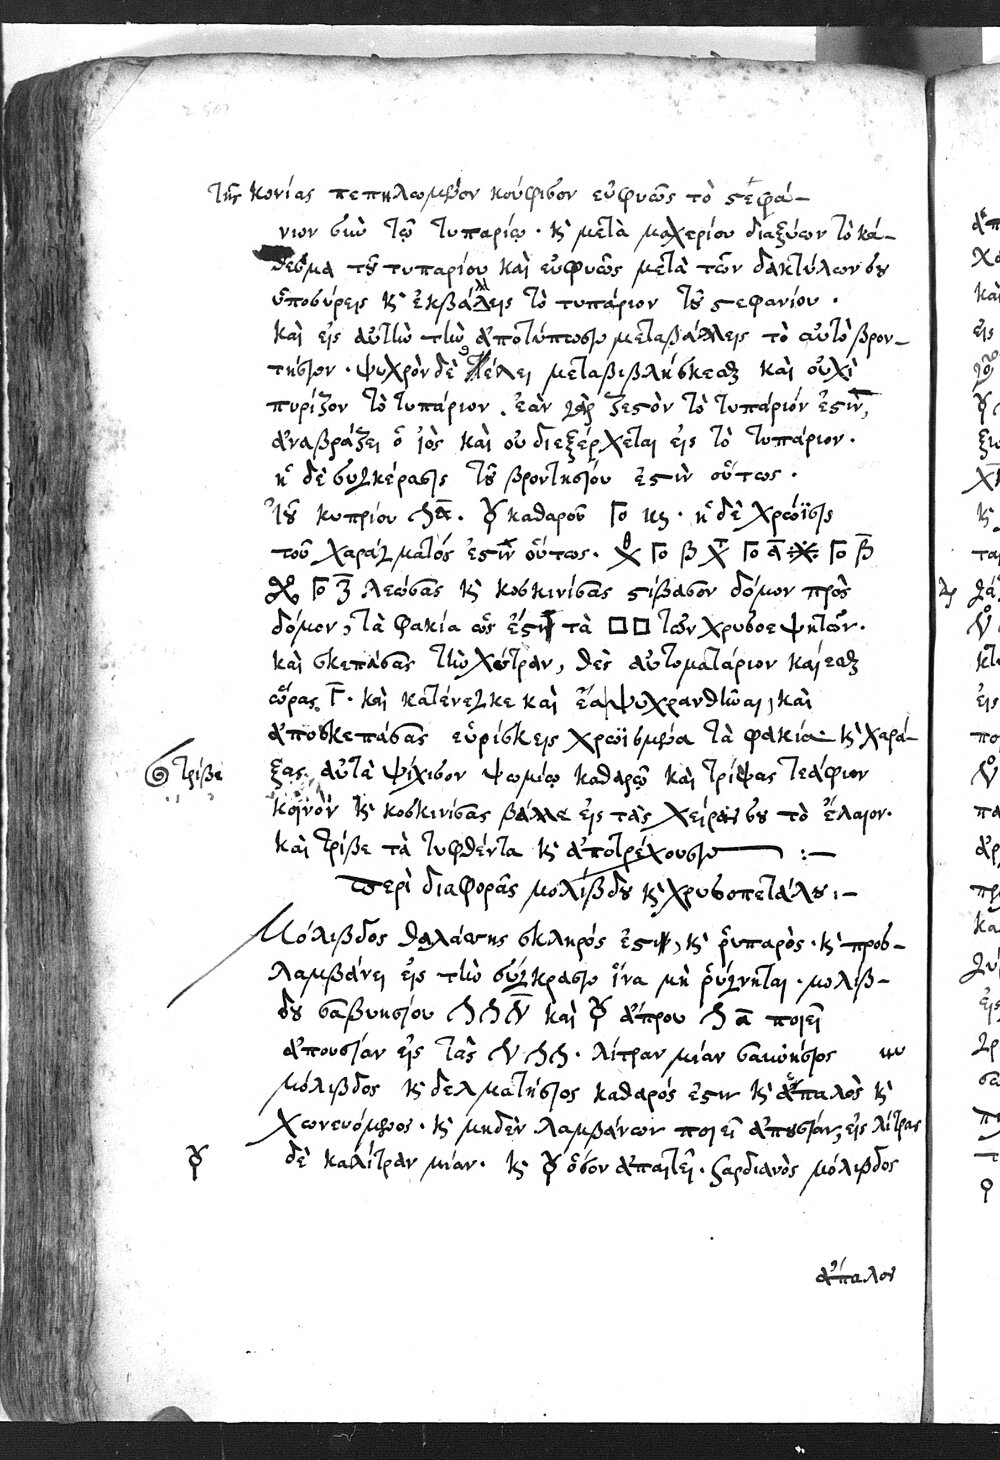 τῆς κονίας πεπηλωμένον κούφισον εὐφυῶς τὸ στεφά-
νιον σὺν τῷ τυπαρίῳ · καὶ μετὰ μαχερίου διαξύων τὸ κά-
θεσμα τοῦ τυπαρίου καὶ εὐφυῶς μετὰ τῶν δακτύλων σου
ὑποσύρεις καὶ ἐκβάλλεις τὸ τυπάριον τοῦ στεφανίου ·
καὶ εἰς αὐτὴν τὴν ἀποτύπωσιν μεταβάλλεις τὸ αὐτὸ βρον-
τήσιον · ψυχρὸν δὲ θέλει μεταβιβλήσκεσθαι καὶ οὐχὶ
πυρίζον τὸ τυπάριον . ἐὰν γὰρ ζεστὸν τὸ τυπάριόν ἐστιν,
ἀναβράζει ὁ ἰὸς καὶ οὐ διεξέρχεται εἰς τὸ τυπάριον ·
ἡ δὲ σύγκερασις τοῦ βροντησίου ἐστὶν οὕτως ·
τοῦ κυπρίου λ α . ☿ καθαροῦ Γο κς · ἡ δὲ χρεόϊσις
τοῦ χαράγματός ἐστιν οὕτως · Γο β Γο α Γο β
Γο ζ λεώσας καὶ κοσκινίσας στίβασον δόμον πρὸς
δόμον, τὰ φακία ὡς ἐστὶ τὰ □□ τῶν χρυσοεψητῶν ·
καὶ σκεπάσας τὴν χύτραν, θὲς αὐτοματάριον καίεσθαι
ὥρας Γ · καὶ κατένεγκε καὶ ἔα ψυχρανθῆναι, καὶ
ἀποσκεπάσας εὑρίσκεις χρεοϊσμένα τὰ φακία καὶ χαρά-
τρίβε
ξας αὐτὰ ψίχισον ψωμίῳ καθαρῷ καὶ τρίψας τεάφιον
κοινὸν καὶ κοσκινίσας βάλλε εἰς τὰς χεῖράς σου τὸ ἔλαιον ·
καὶ τρίβε τὰ τυφθέντα καὶ ἀποτρέχουσιν :—
περὶ διαφορᾶς μολίβδου καὶ χρυσοπετάλου :—
Μόλιβδος θαλάσσης σκληρός ἐστι, καὶ ῥυπαρὸς · καὶ προσ-
λαμβάνει εἰς τὴν σύγκρασιν ἵνα μὴ ῥύγνηται · μολίβ-
δου σαβυησίου καὶ ☿ ἄπρου λ α ποιεῖ
ἀπουσίαν εἰς τὰς λίτραν μίαν
μόλιβδος καὶ δελματήσιος καθαρός ἐστιν καὶ ἁπαλὸς καὶ
χωνευόμενος · καὶ μηδὲν λαμβάνων ποιεῖ ἀπουσίαν, εἰς λίτρας
☿
δὲ καλίτραν μίαν · καὶ ☿ ὅσον ἀπαιτεῖ · Σαρδιανὸς μόλιβδος
ἅπαλου